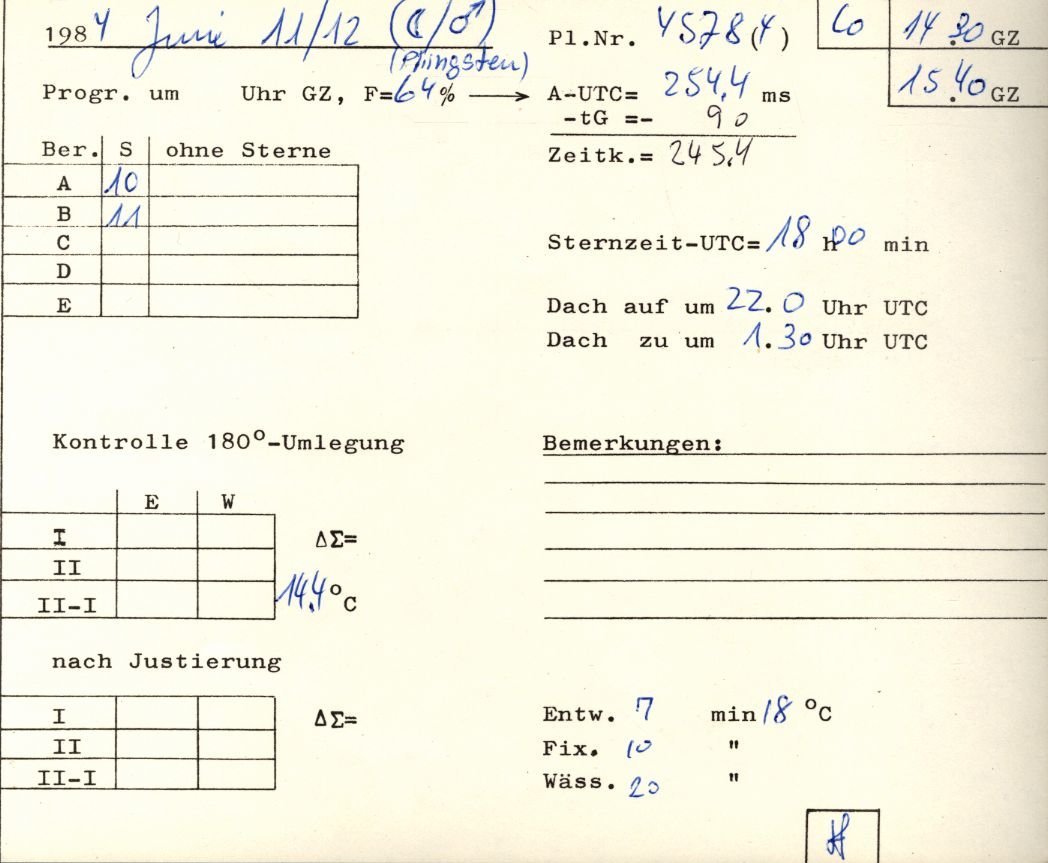 1984 Juni 11/12 (☾/♂) Pl.Nr. 4578(4) Co 14.30 GZ
(Pfingsten) 15.40 GZ
Progr. um Uhr GZ, F=64% → A-UTC= 254,4 ms
-tG =- 9 0
Zeitk.= 245,4
Ber. S ohne Sterne
A 10
B 11
C
D
E
Sternzeit-UTC= 18 h 00 min
Dach auf um 22.0 Uhr UTC
Dach zu um 1.30 Uhr UTC
Kontrolle 180°-Umlegung
E W
I ΔΣ=
II
II-I 14,4 °C
nach Justierung
I ΔΣ=
II
II-I
Bemerkungen:
Entw. 7 min 18 °C
Fix. 10 "
Wäss. 20 "